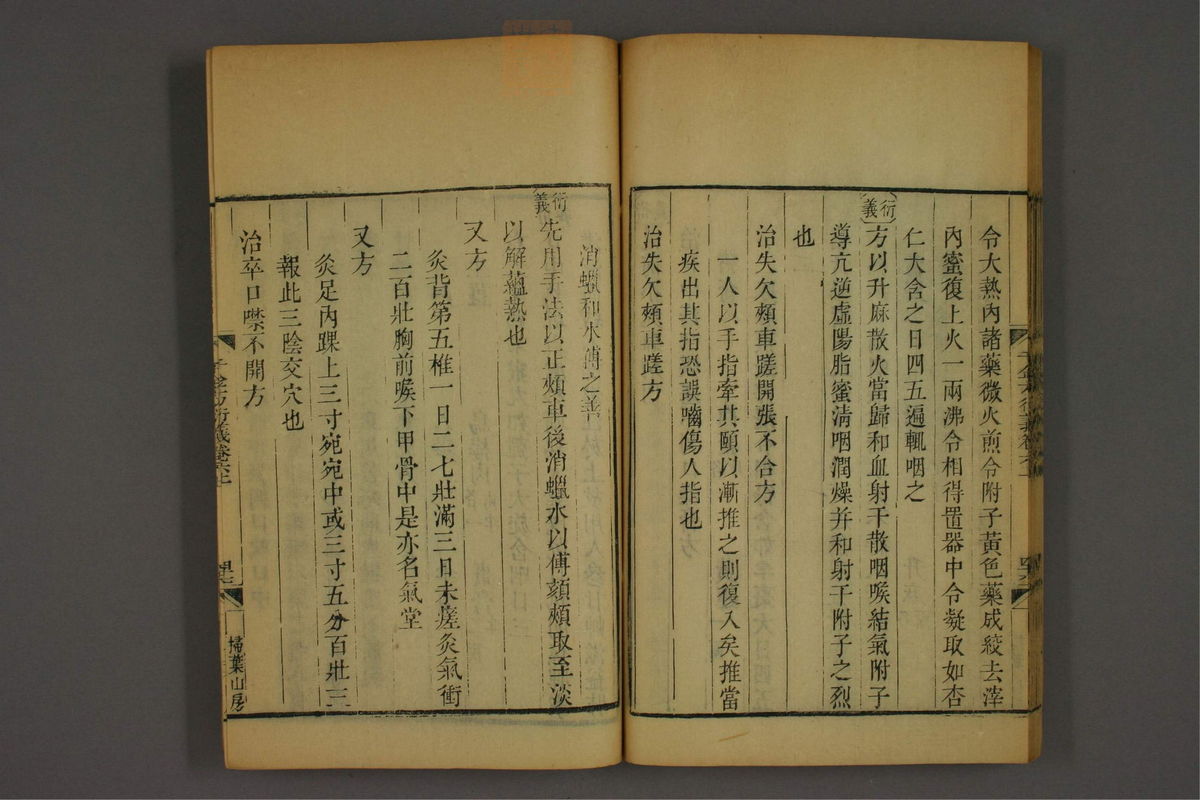 令大熱內諸藥微火煎令附子黃色藥成絞去滓
內蜜復上火一兩沸令相得置器中令凝取如杏
仁大含之日四五遍輒咽之
衍義
方以升麻散火當歸和血射干散咽喉結氣附子
導亢逆虛陽脂蜜淸咽潤燥并和射干附子之烈
也
治失欠頰車蹉開張不合方
一人以手指牽其頤以漸推之則復入矣推當
疾出其指恐誤嚙傷人指也
治失欠頰車蹉方
消蠟和水傅之善
衍義
先用手法以正頰車後消蠟水以傅頦頰取至淡
以解蘊熱也
又方
灸背第五椎一日二七壯滿三日未瘥灸氣衝
二百壯胸前喉下甲骨中是亦名氣堂
又方
灸足內踝上三寸宛宛中或三寸五分百壯三
報此三陰交穴也
治卒口噤不開方
千金方衍義卷六上
掃葉山房